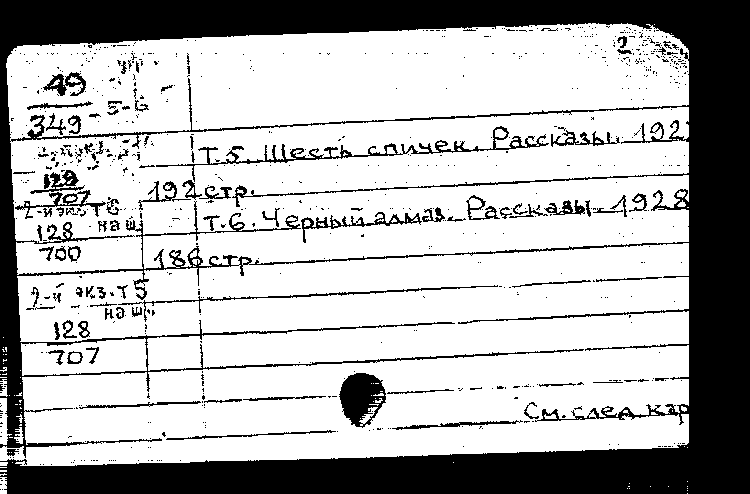 2
49
349 - 5-6
Т.5. Шесть спичек. Рассказы. 192
192 стр.
128
707
Т.6. Черный алмаз. Рассказы. 1928
186 стр.
2-й экз Т6
наш.
128
700
2-й экз. т 5
наш.
128
707
См. след. кар